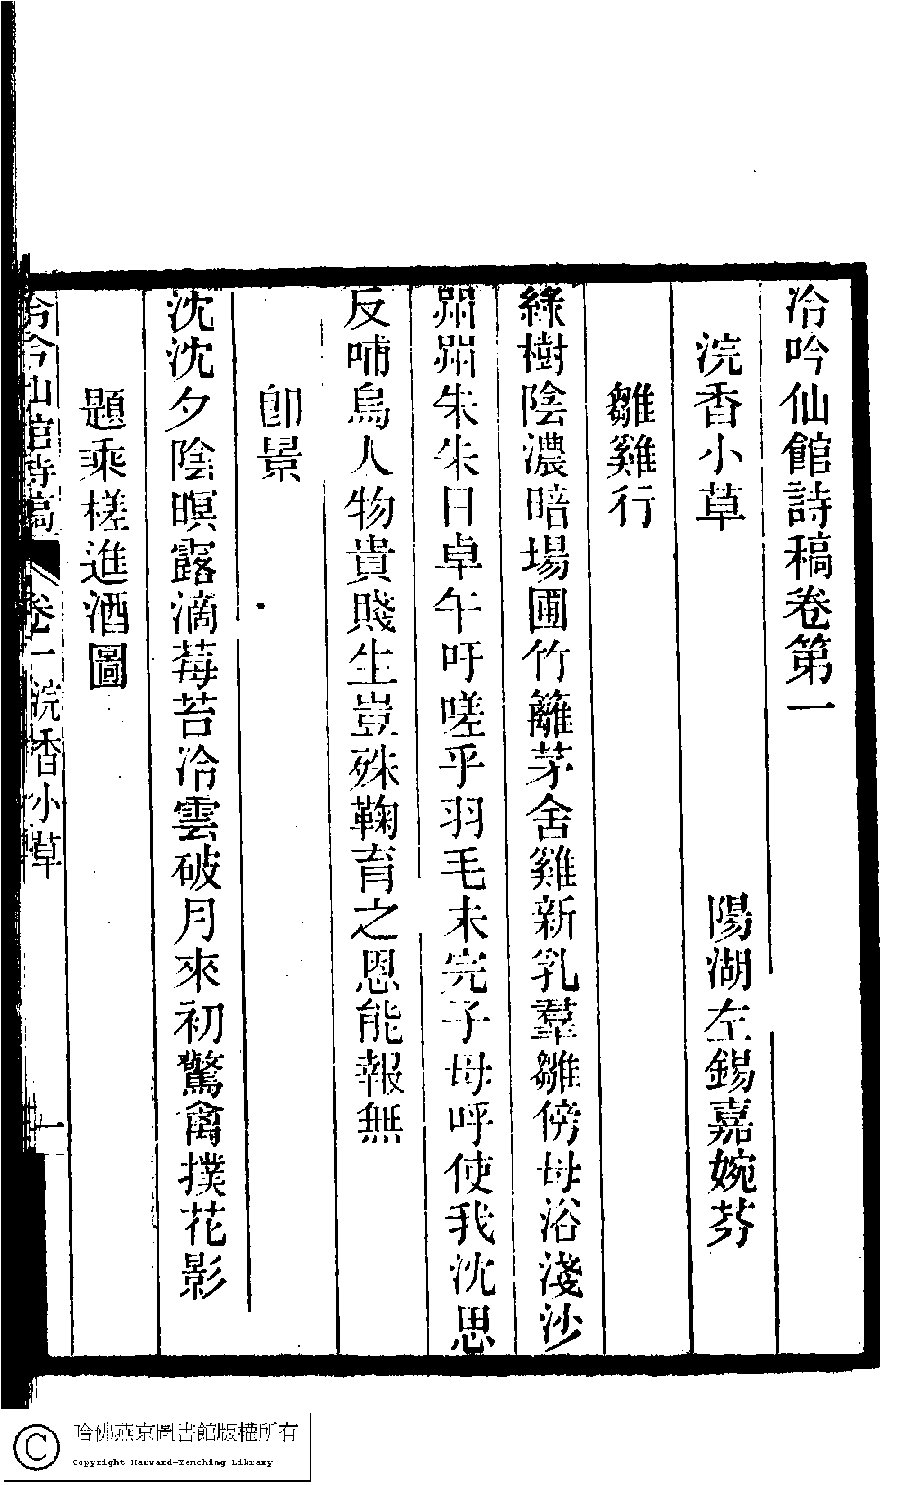 冷吟仙館詩稿卷第一
浣香小草　陽湖左錫嘉婉芬
雛雞行
綠樹陰濃暗場圃竹籬茅舍雞新乳羣雛傍母浴淺沙
朱朱日卓午吁嗟乎羽毛未完子母呼使我沈思
反哺烏人物貴賤生豈殊鞠育之恩能報無
卽景
沈沈夕陰暝露滴莓苔冷雲破月來初驚禽撲花影
題乘槎進酒圖
冷吟仙館詩稿　卷一浣香小草　一
哈佛燕京圖書館版權所有
Copyright Harvard-Yenching Library